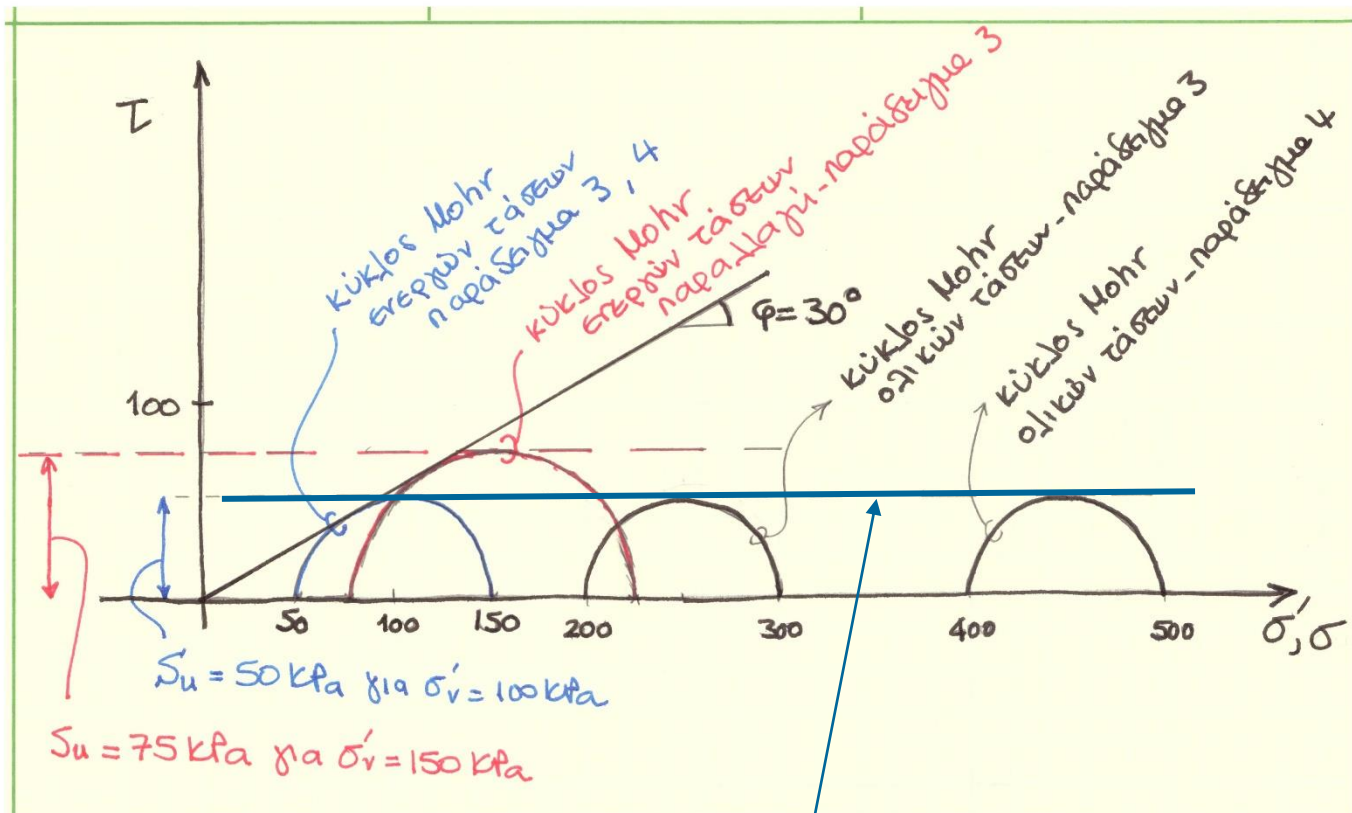 τ
κύκλος Mohr
ενεργών τάσεων
παράδειγμα 3, 4
κύκλος Mohr
ενεργών τάσεων
παραλλαγή-παράδειγμα 3
κύκλος Mohr
ολικών τάσεων-παράδειγμα 3
κύκλος Mohr
ολικών τάσεων-παράδειγμα 4
φ=30°
100
50
100
150
200
300
400
500
σ',σ
Su = 50 kPa για σ'v = 100 kPa
Su = 75 kPa για σ'v = 150 kPa